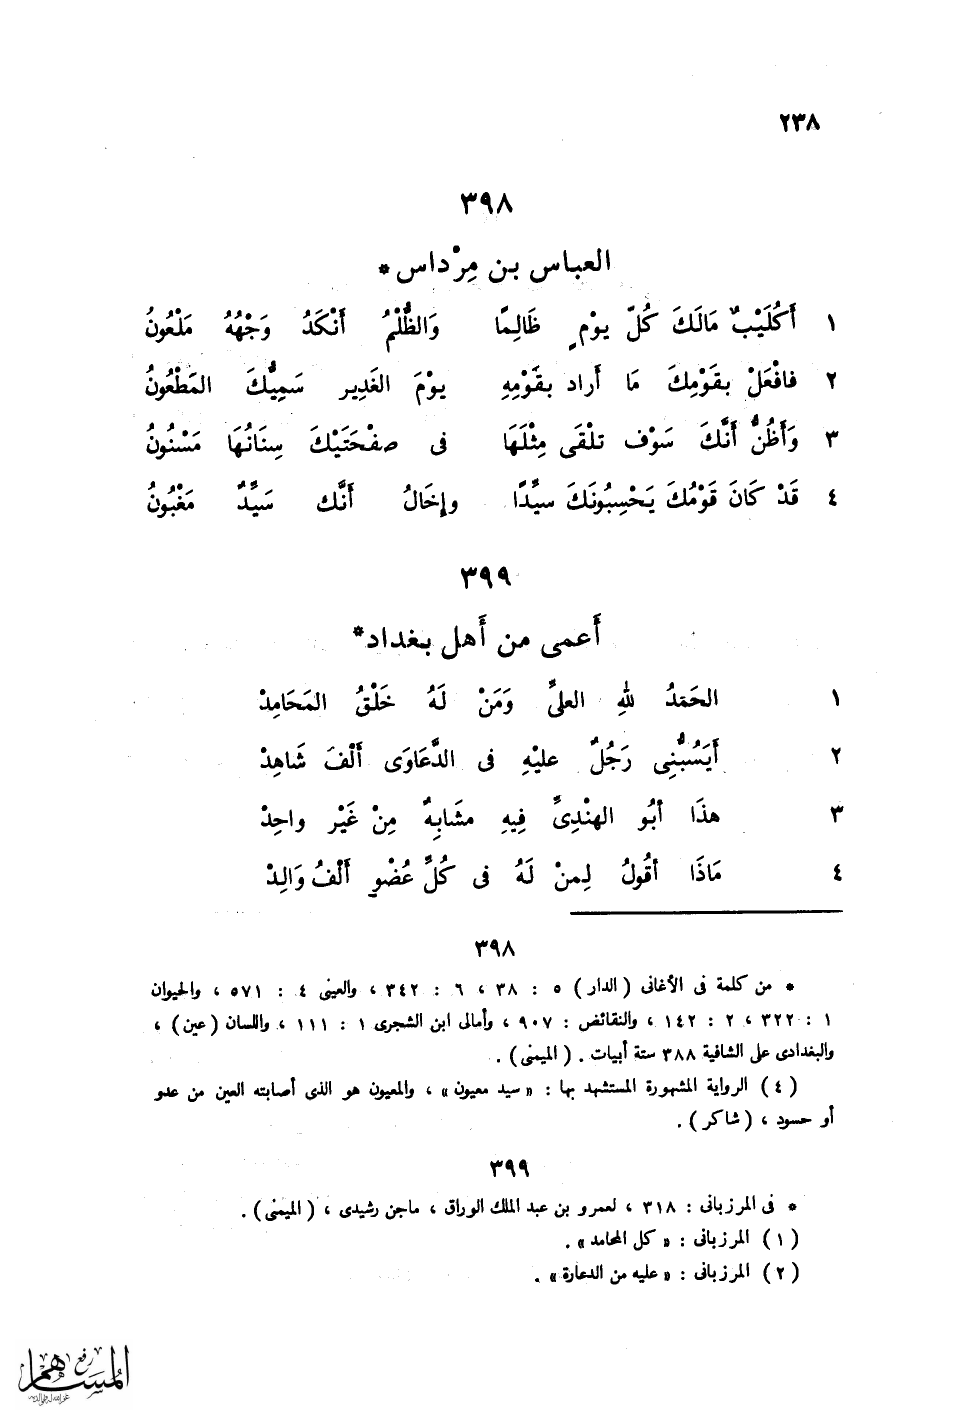 ٢٣٨
٣٩٨
العباس بن مِرْداس *
١ أَكُلَيْبٌ مَالَكَ كُلّ يوْمٍ ظَالِمًا وَالظُّلْمُ أَنْكَدُ وَجْهُهُ مَلْعُونُ
٢ فافْعَلْ بقَوْمِكَ مَا أَراد بقَوْمِهِ يوْمَ الغَدِير سَمِيُّكَ المَطْعُونُ
٣ وَأَظُنُّ أَنَّكَ سَوْف تلْقَى مِثْلَهَا فى صفْحَتَيْكَ سِنَانُهَا مَسْنُونُ
٤ قَدْ كَانَ قَوْمُكَ يَحْسِبُونَكَ سيِّدًا وإِخَالُ أَنَّك سَيِّدٌ مَغْبُونُ
٣٩٩
أَعمى من أَهل بغداد*
١ الحَمَدُ لِلهِ العلىِّ وَمَنْ لَهُ خَلْقُ المَحَامِدْ
٢ أَيَسُبُّنِى رَجُلٌ عليْهِ فى الدَّعَاوَى أَلْفَ شَاهِدْ
٣ هذَا أبُو الهنْدِىِّ فِيهِ مشَابِهٌ مِنْ غَيْر واحِدْ
٤ مَاذَا أقُولُ لِمنْ لَهُ فى كُلِّ عُضْوٍ أَلْفُ وَالِدْ
٣٩٨
* من كلمة فى الأغانى (الدار) ٥ : ٣٨ ، ٦ : ٣٤٢ ، والعينى ٤ : ٥٧١ ، والحيوان
١ : ٣٢٢ ، ٢ : ١٤٢ ، والنقائض : ٩٠٧ ، وأمالى ابن الشجرى ١ : ١١١ ، واللسان (عين) ،
والبغدادى على الشافية ٣٨٨ ستة أبيات . (الميمنى) .
(٤) الرواية المشهورة المستشهد بها : « سيد معيون » ، والمعيون هو الذى أصابته العين من عدو
أو حسود ، (شاكر) .
٣٩٩
* فى المرزبانى : ٣١٨ ، لعمرو بن عبد الملك الوراق ، ماجن رشيدى ، (الميمنى) .
(١) المرزبانى : « كل المحامد » .
(٢) المرزبانى : « عليه من الدعارة » .
رفع
المساهم